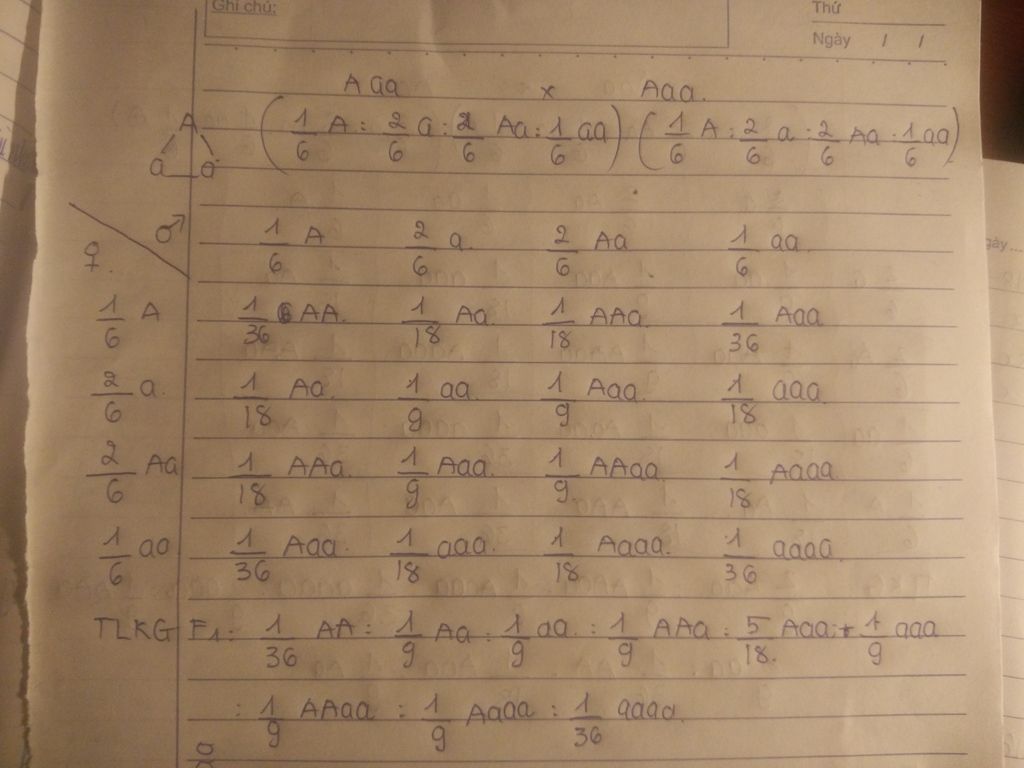 Ghi chú:
Thứ
Ngày / /
Aaa x Aaa.
A
a a
(1/6 A : 2/6 a : 2/6 Aa : 1/6 aa) . (1/6 A : 2/6 a : 2/6 Aa : 1/6 aa)
♀ ♂ 1/6 A 2/6 a 2/6 Aa 1/6 aa
1/6 A 1/36 AA. 1/18 Aa 1/18 AAa 1/36 Aaa
2/6 a 1/18 Aa 1/9 aa 1/9 Aaa 1/18 aaa
2/6 Aa 1/18 AAa 1/9 Aaa 1/9 AAaa 1/18 Aaaa
1/6 aa 1/36 Aaa. 1/18 aaa. 1/18 Aaaa. 1/36 aaaa
TLKG F1: 1/36 AA : 1/9 Aa : 1/9 aa : 1/9 AAa : 5/18 Aaa : 1/9 aaa
: 1/9 AAaa : 1/9 Aaaa : 1/36 aaaa